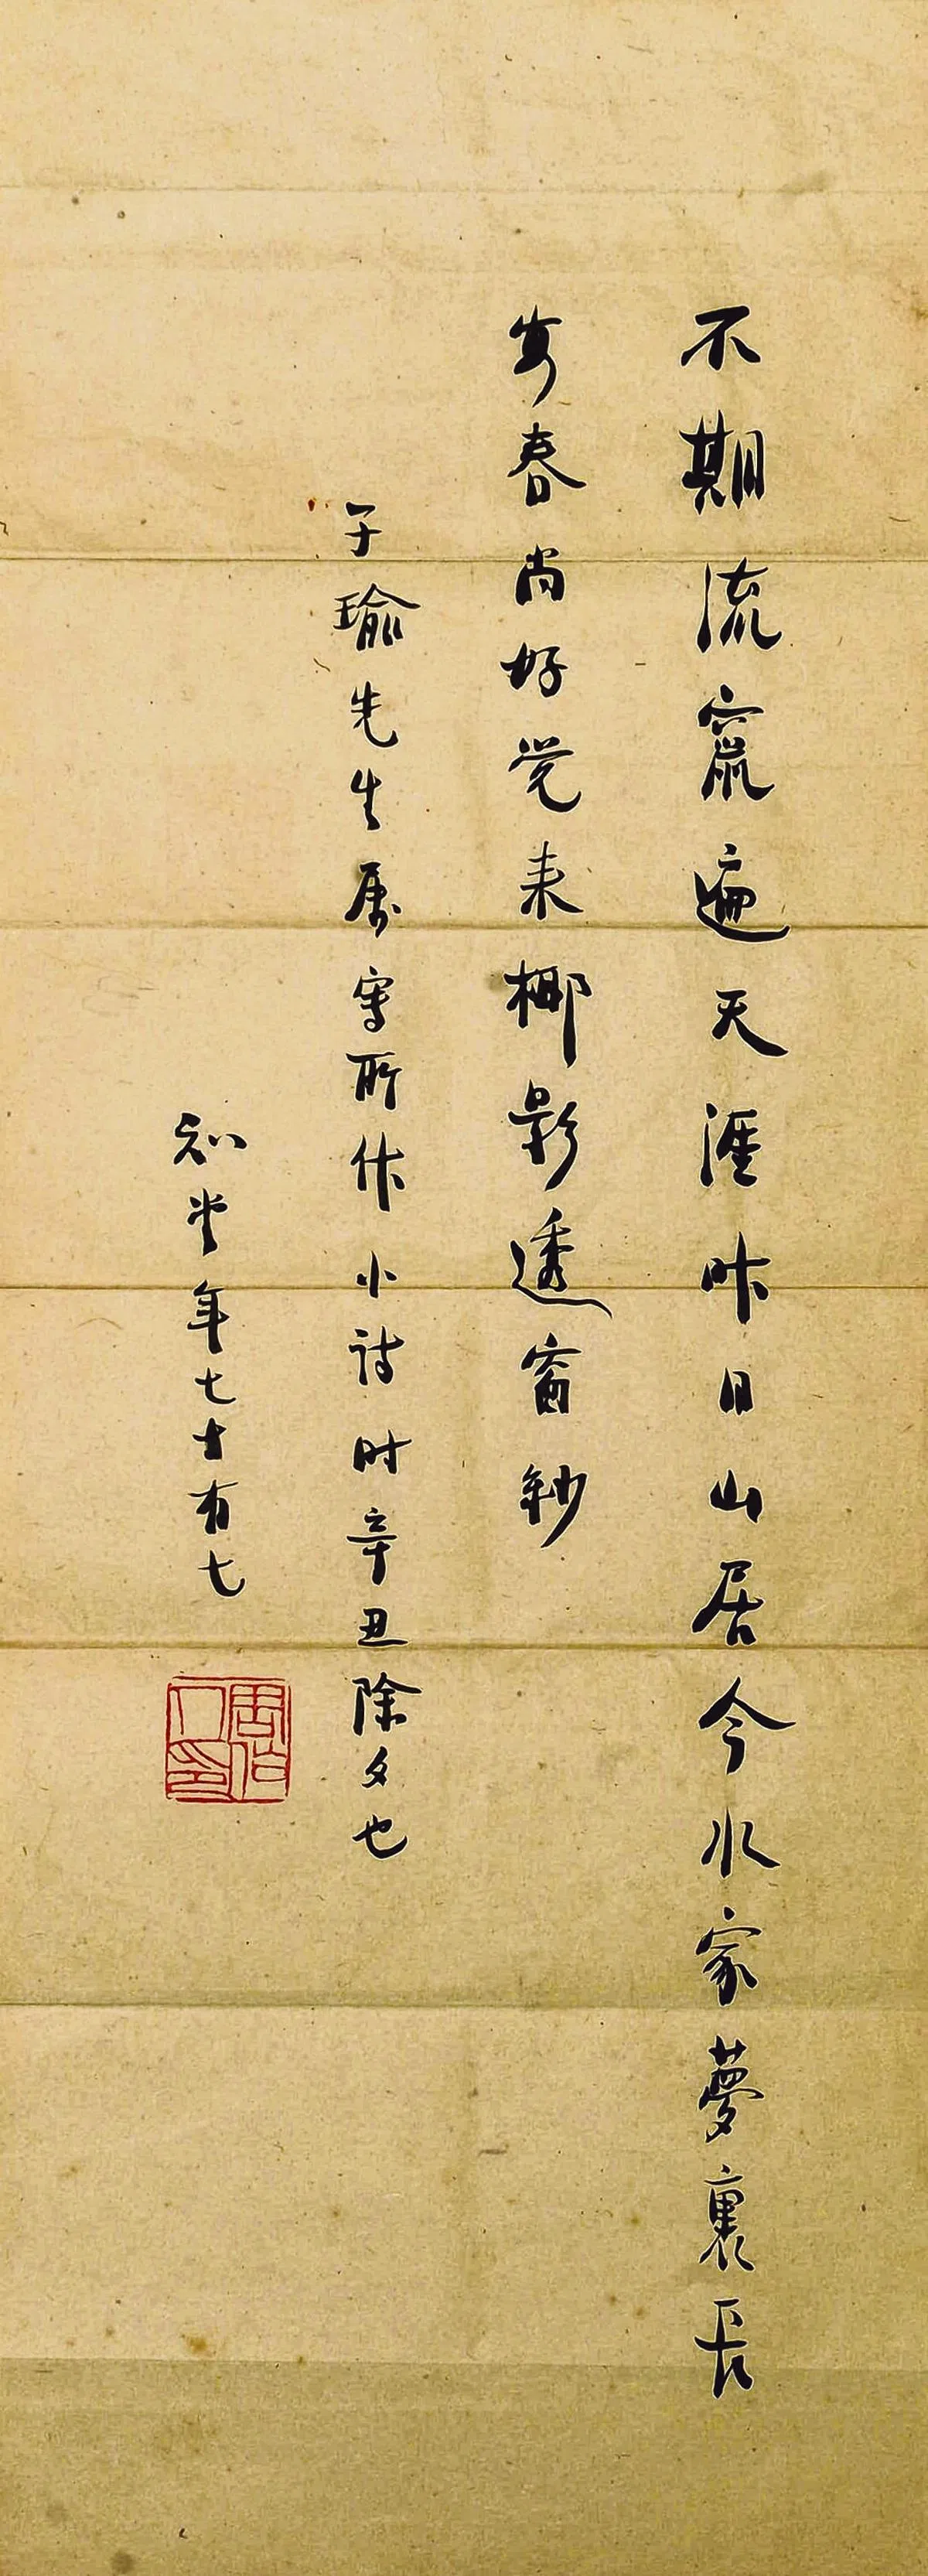 不期流竄遍天涯昨日山居今水家夢裏長
安春尚好觉来椰影透窗紗
子瑜先生属写所作小诗时辛丑除夕也
知堂年七十有七
周作人印